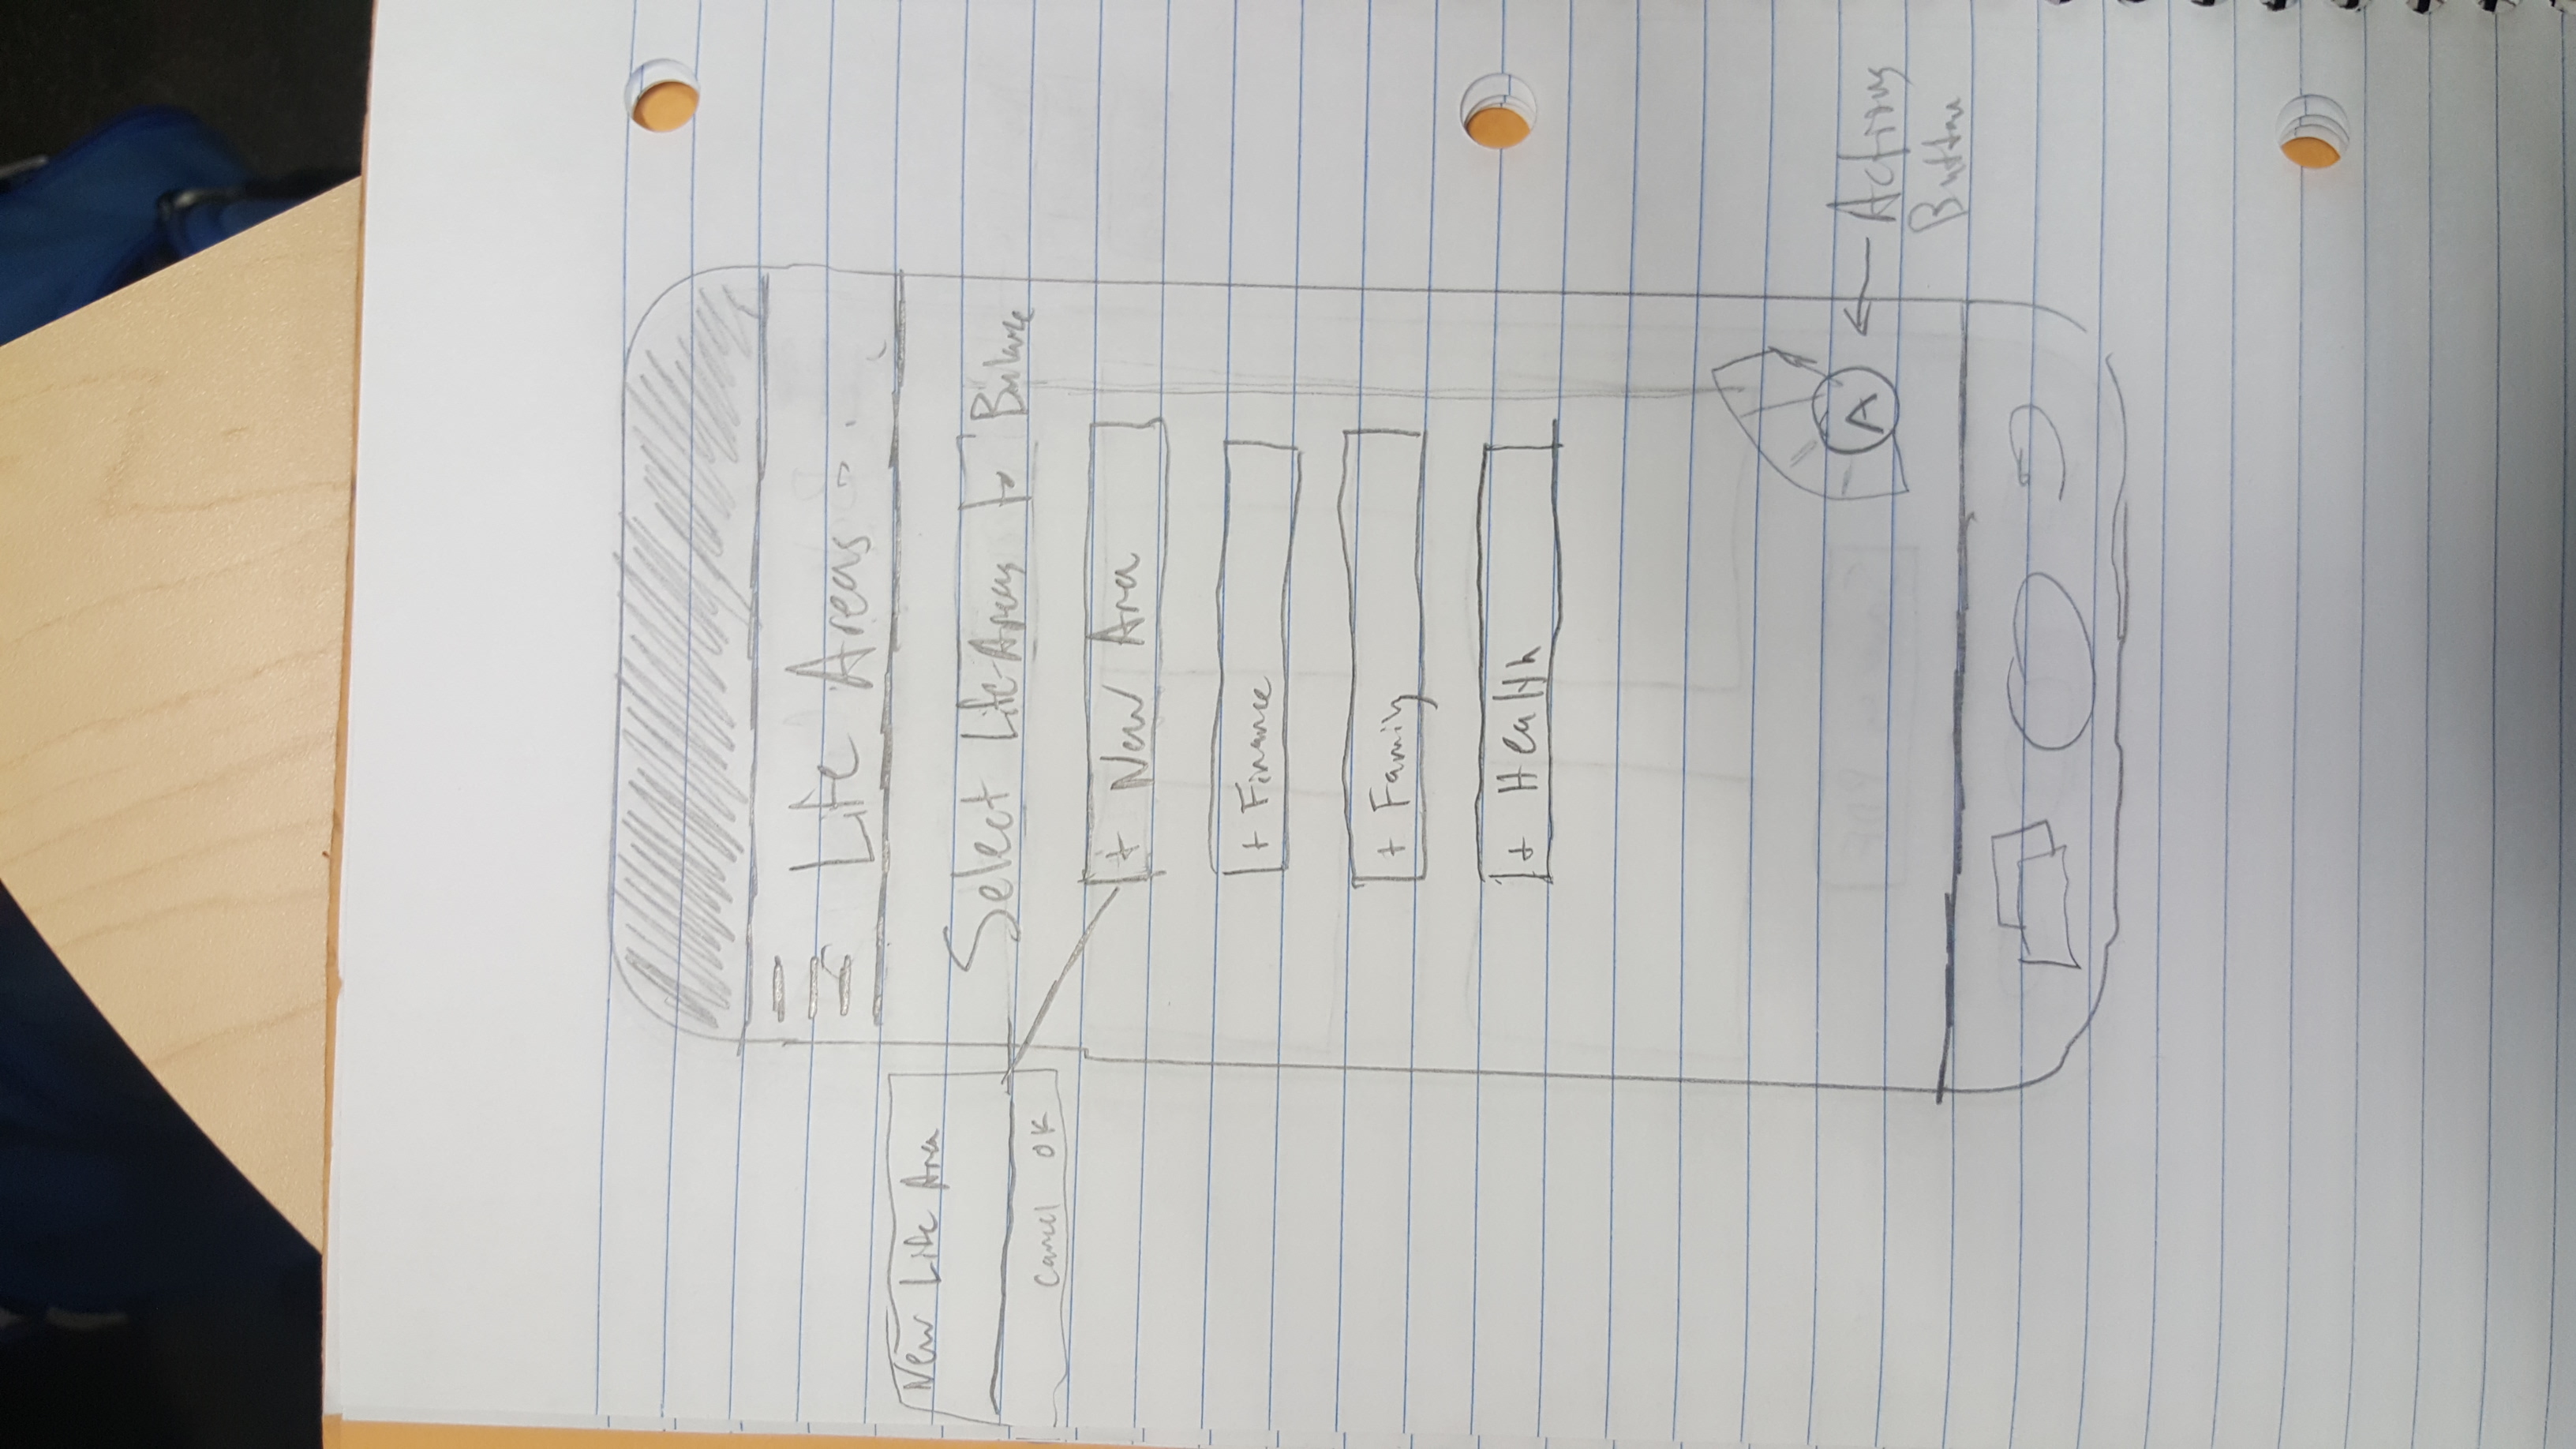 Life Areas
New Life Area
Cancel OK
Select Life Areas to Balance
+ New Area
+ Finance
+ Family
+ Health
A
Actions
Button